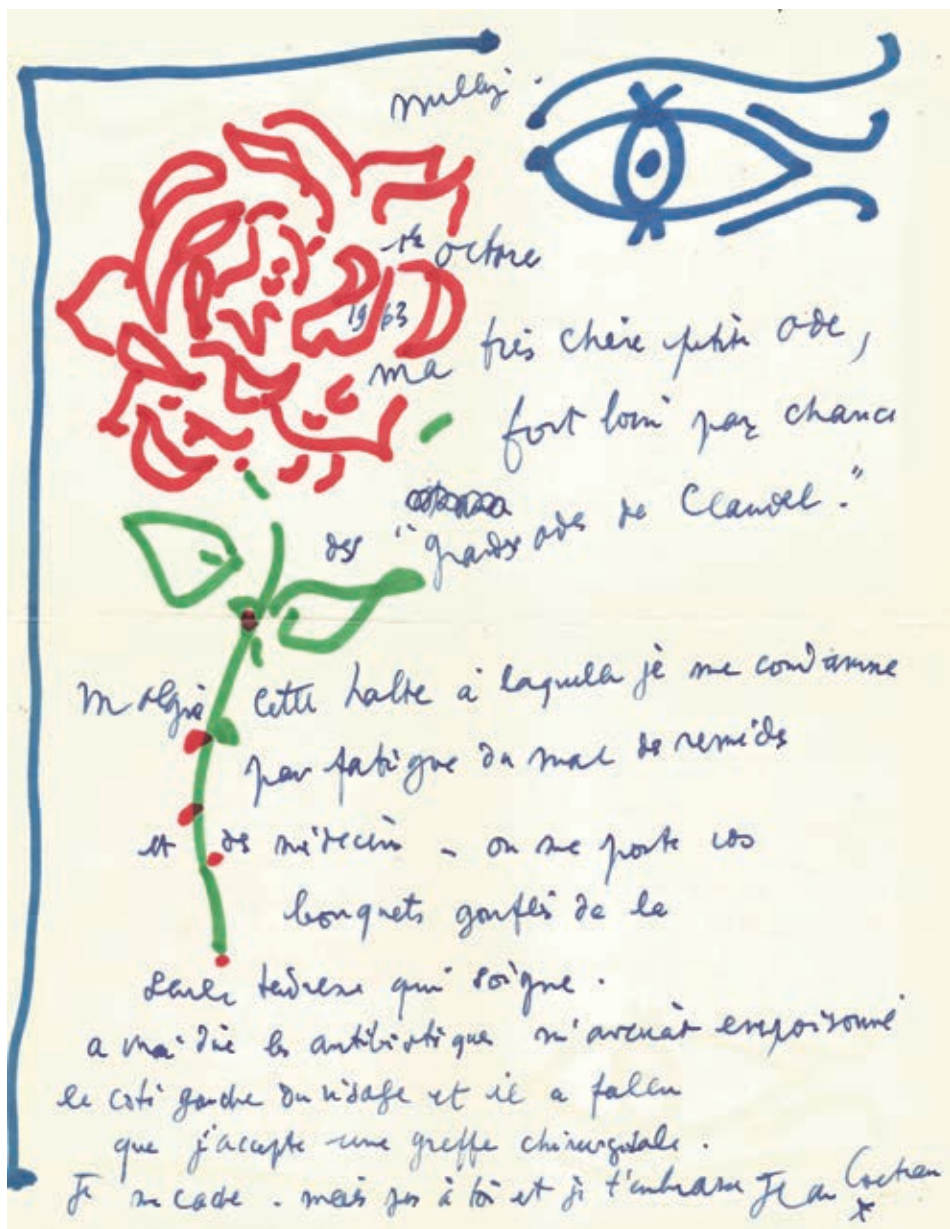 Milly.
octobre
1963
ma très chère petite ode,
fort loin par chance
des "grandes odes de Claudel."
Malgré cette halte à laquelle je me condamne
par fatigue du mal de remèdes
et de médecins – on me porte ces
bouquets gonflés de la
seule tendresse qui soigne.
les antibiotiques m'avaient empoisonné
le côté gauche du visage et il a fallu
que j'accepte une greffe chirurgicale.
Je me cache. mais pas à toi et je t'embrasse Jean Cocteau